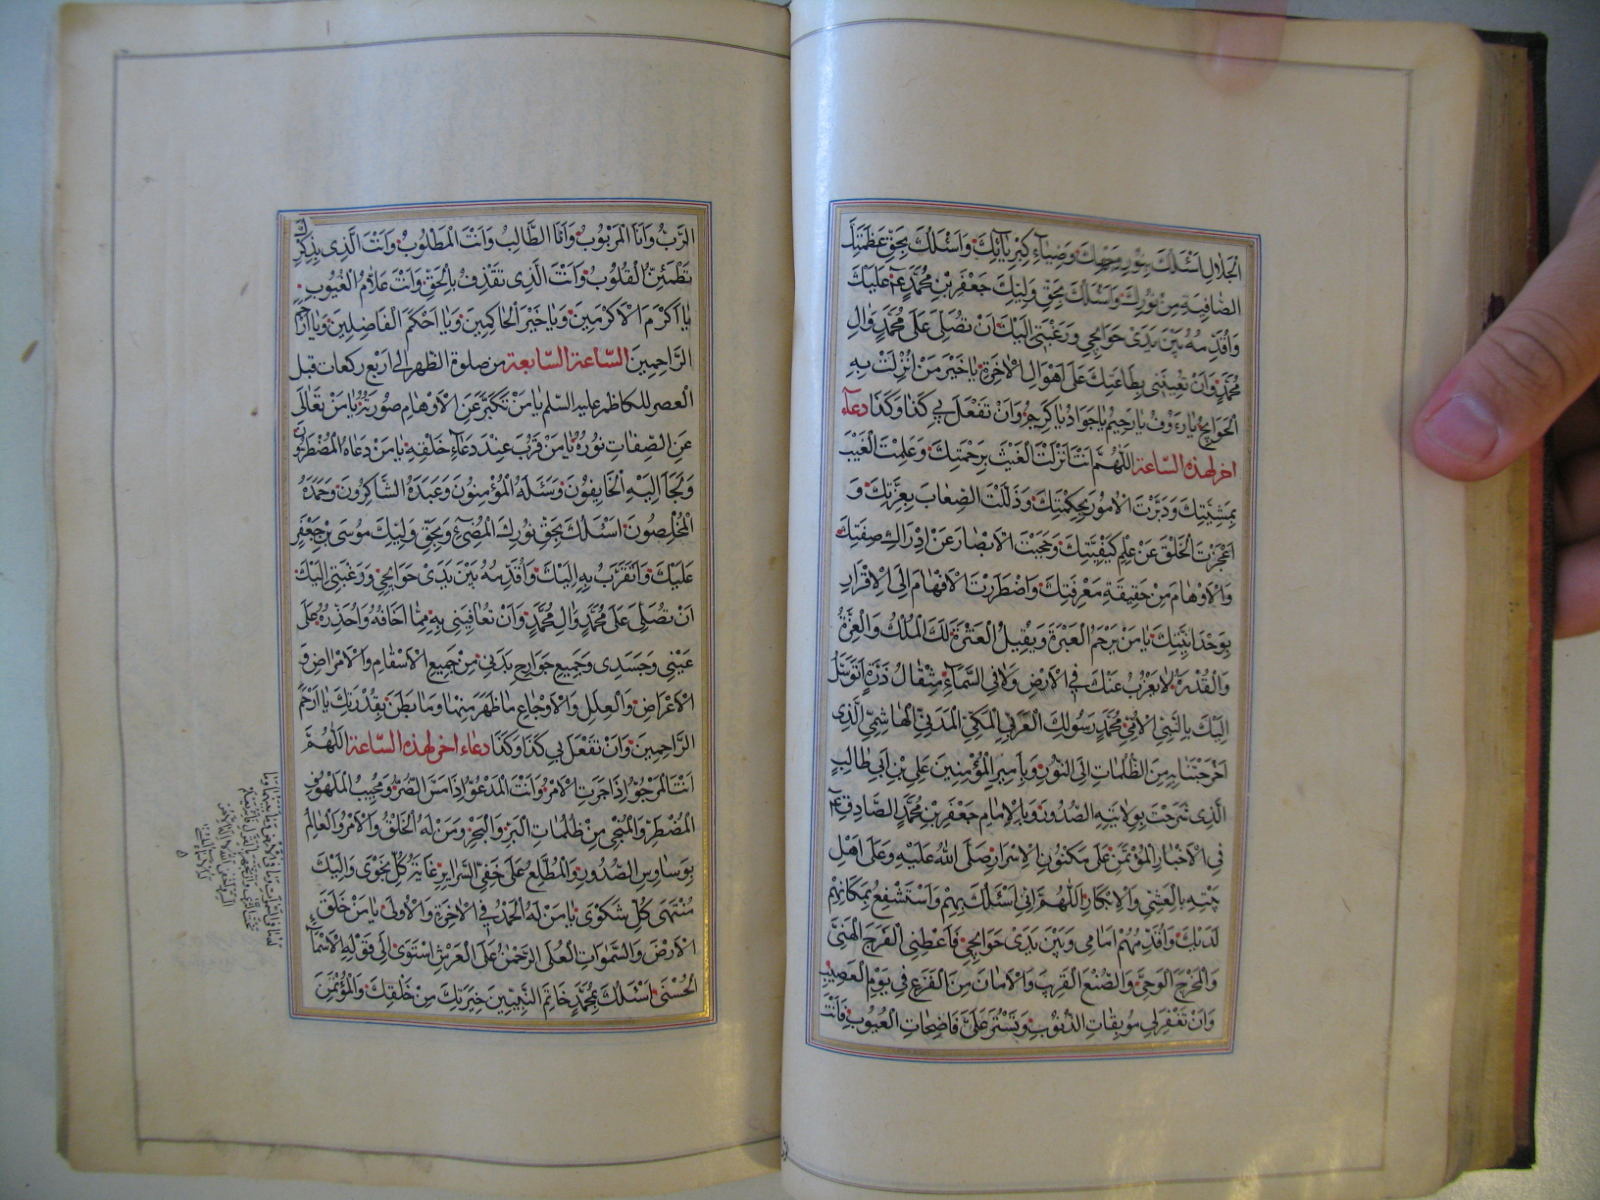 الجلال اسئلك بنور وجهك وضياء كبريائك واسئلك بحق عظمتك
الصافية من نورك واسئلك بحق وليك جعفر بن محمد ع عليك
واقدمه بين يدى حوايجي ورغبتي اليك ان تصلى على محمد وال
محمد وان تعينني بطاعتك على اهوال الاخرة يا خير من انزلت به
الحوايج يا رءوف يا رحيم يا جواد يا كريم وان تفعل بي كذا وكذا دعاء
اخر لهذه الساعة اللهم انت انزلت الغيث برحمتك وعلمت الغيب
بمشيتك ودبرت الامور بحكمتك وذللت الصعاب بعزتك و
اعجزت الخلق عن علم كيفيتك وحجبت الابصار عن ادراك صفتك
والاوهام من حقيقة معرفتك واضطررت الافهام الى الاقرار
بوحدانيتك يا من يرحم العبرة ويقيل العثرة لك الملك والعزة
والقدرة لا يعزب عنك في الارض ولا في السماء مثقال ذرة اتوسل
اليك بالنبي الامي محمد رسولك العربي المكي المدني الهاشمي الذي
اخرجتنا به من الظلمات الى النور وبامير المؤمنين علي بن ابي طالب
الذي شرحت بولايته الصدور وبالامام جعفر بن محمد الصادق ع
في الاخبار المؤتمن على مكنون الاسرار صلى الله عليه وعلى اهل
بيته بالعشي والابكار اللهم اني اسئلك بهم واستشفع بمكانهم
لديك واقدمهم امامي وبين يدى حوايجي فاعطني الفرج الهنئ
والمخرج الوحي والصنع القريب والامان من الفزع في يوم العصيب
وان تغفر لي موبقات الذنوب وتستر على فاضحات العيوب فانت
الرب وانا المربوب وانا الطالب وانت المطلوب وانت الذى بذكرك
تطمئن القلوب وانت الذى تقذف بالحق وانت علام الغيوب
يا اكرم الاكرمين ويا خير الحاكمين ويا احكم الفاصلين ويا ارحم
الراحمين الساعة السابعة من صلوة الظهر الى اربع ركعات قبل
العصر للكاظم عليه السلم يا من تكبر عن الاوهام صورته يا من تعالى
عن الصفات نوره يا من قرب عند دعاء خلقه يا من دعاه المضطرون
ولجأ اليه الخايفون وسئله المؤمنون وعبده الشاكرون وحمده
المخلصون اسئلك بحق نورك المضئ وبحق وليك موسى بن جعفر
عليك واتقرب به اليك واقدمه بين يدى حوايجي ورغبتي اليك
ان تصلى على محمد وال محمد وان تعافيني به مما اخافه واحذره على
عيني وجسدى وجميع جوارح بدني من جميع الاسقام والامراض و
الاعراض والعلل والاوجاع ما ظهر منها وما بطن بقدرتك يا ارحم
الراحمين وان تفعل بي كذا وكذا دعاء اخر لهذه الساعة اللهم
انت المرجو اذا حزت الامر وانت المدعو اذا مس الضر ومجيب الملهوف
المضطر والمنجي من ظلمات البر والبحر ومن له الخلق والامر والعالم
بوساوس الصدور والمطلع على خفي السراير غاية كل نجوى واليك
منتهى كل شكوى يا من له الحمد في الاخرة والاولى يا من خلق
الارض والسموات العلى الرحمن على العرش استوى الى قوله الاسماء
الحسنى اسئلك بمحمد خاتم النبيين خيرتك من خلقك والمؤتمن
له ما في السموات وما في الارض وما بينهما وما
تحت الثرى وان تجهر بالقول فانه يعلم
السر واخفى الله لا اله الا هو